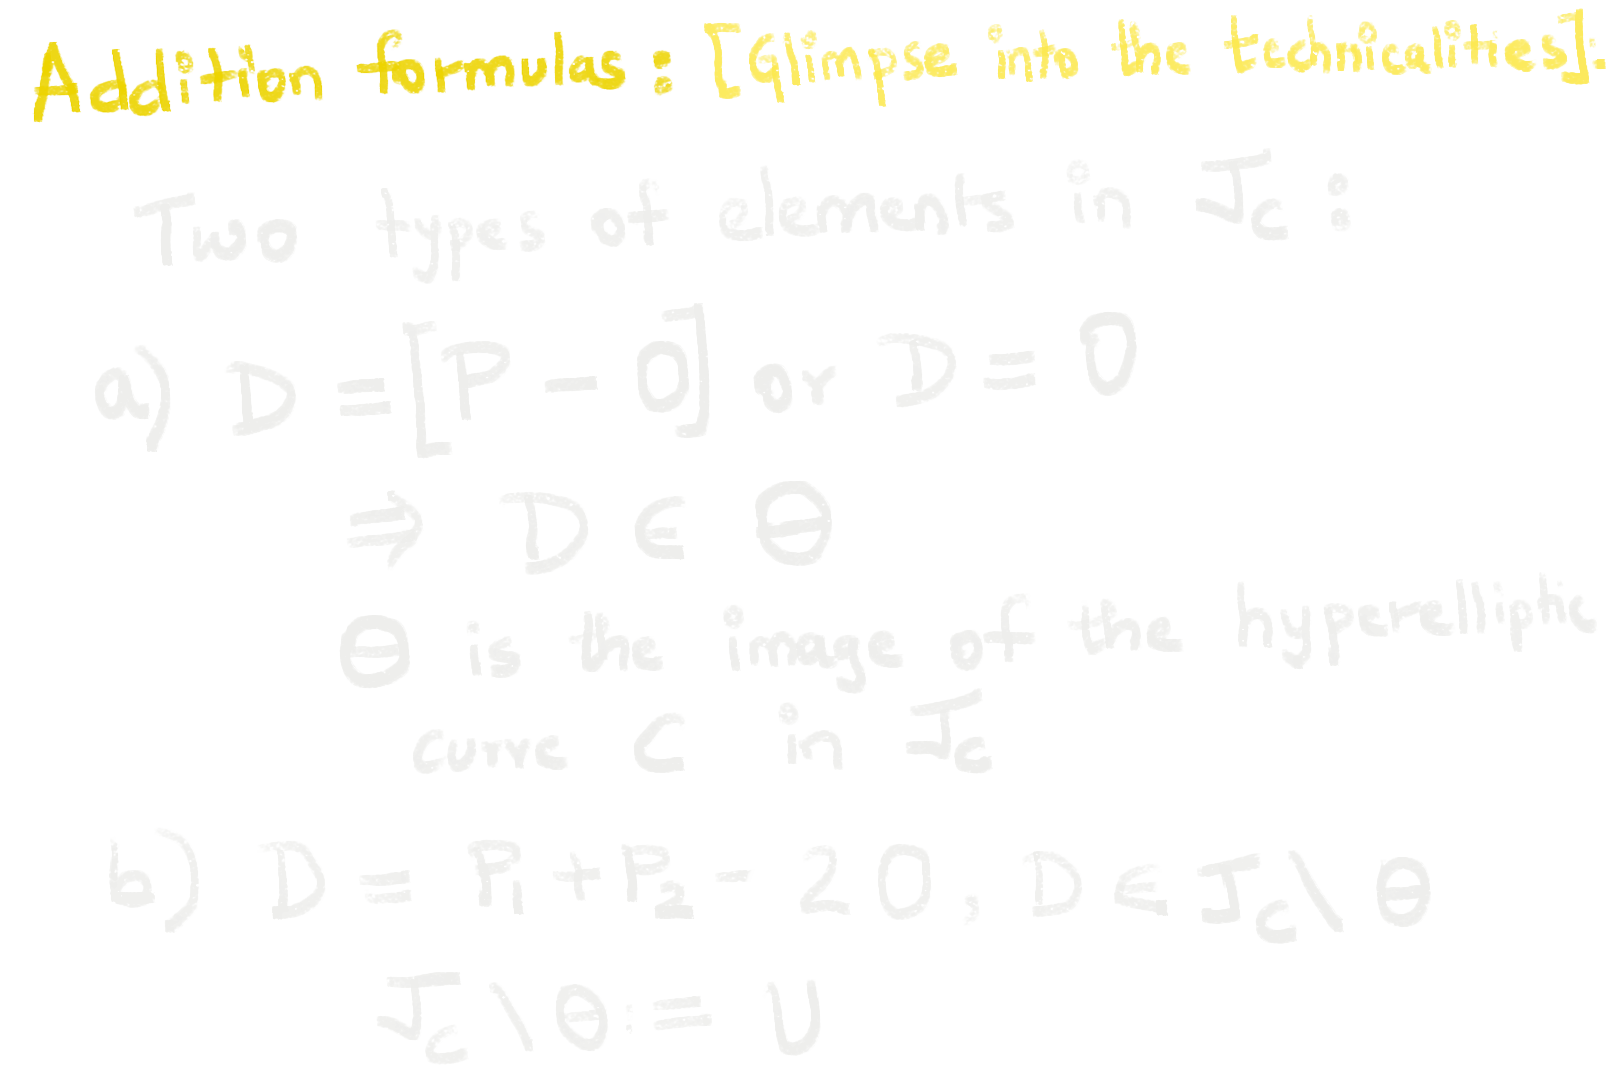 Addition formulas : [Glimpse into the technicalities].
Two types of elements in J_C :
a) D = [P - O] or D = 0
⇒ D ∈ Θ
Θ is the image of the hyperelliptic
curve C in J_C
b) D = P₁ + P₂ - 2O, D ∈ J_C \ Θ
J_C \ Θ := U